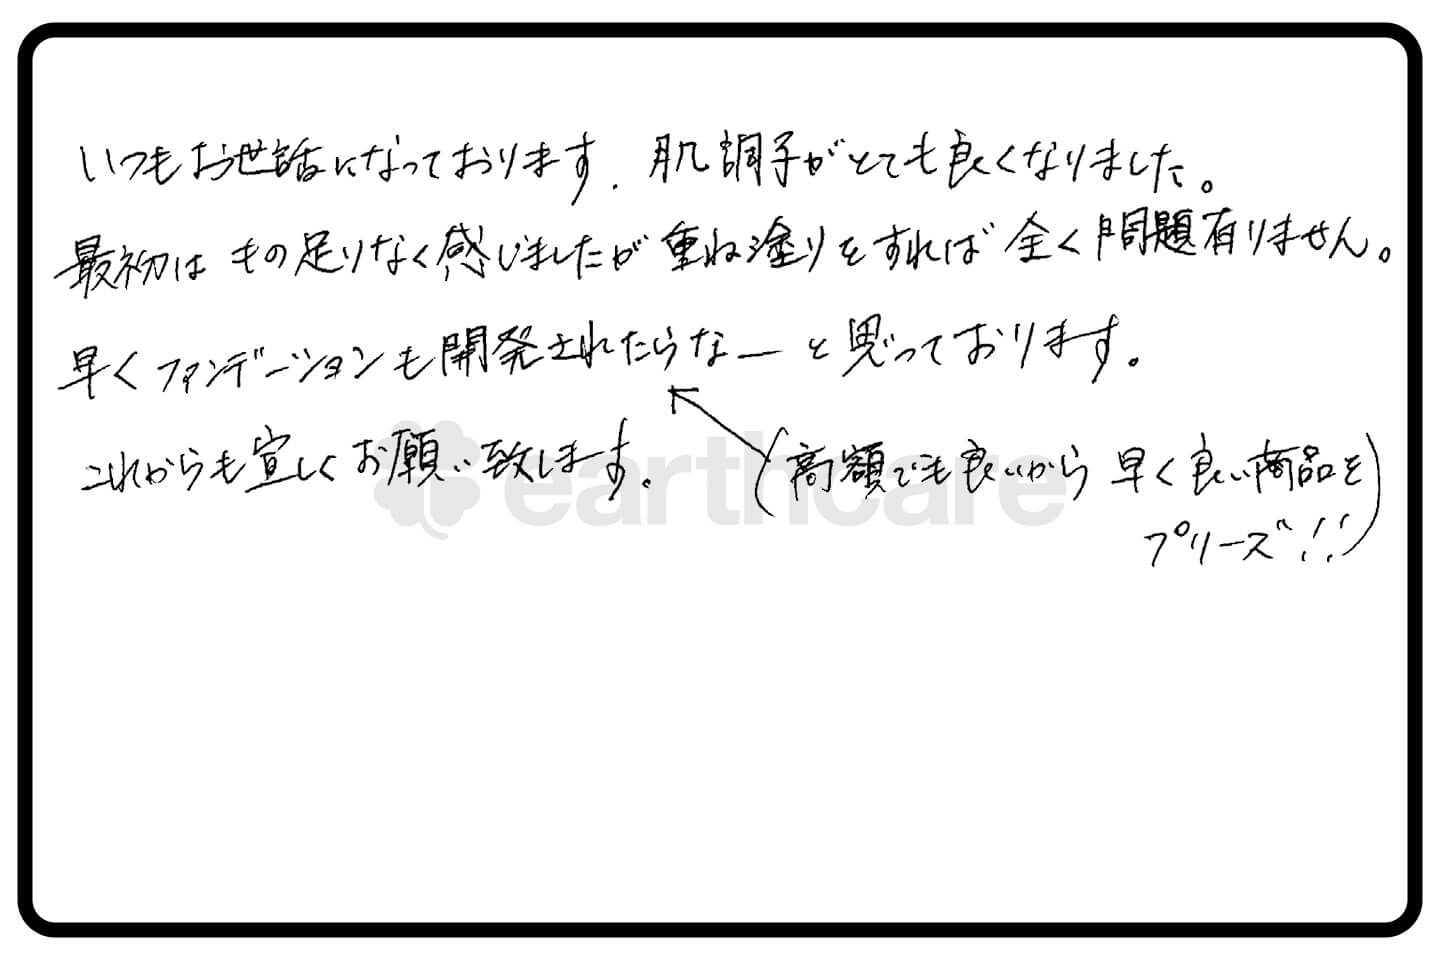 いつもお世話になっております. 肌調子がとても良くなりました。
最初は もの足りなく感じましたが重ね塗りをすれば 全く問題有りません。
早くファンデーションも開発されたらなーと思っております。
これからも宜しくお願い致します。
(高額でも良いから 早く良い商品を
プリーズ!!)
earthcare